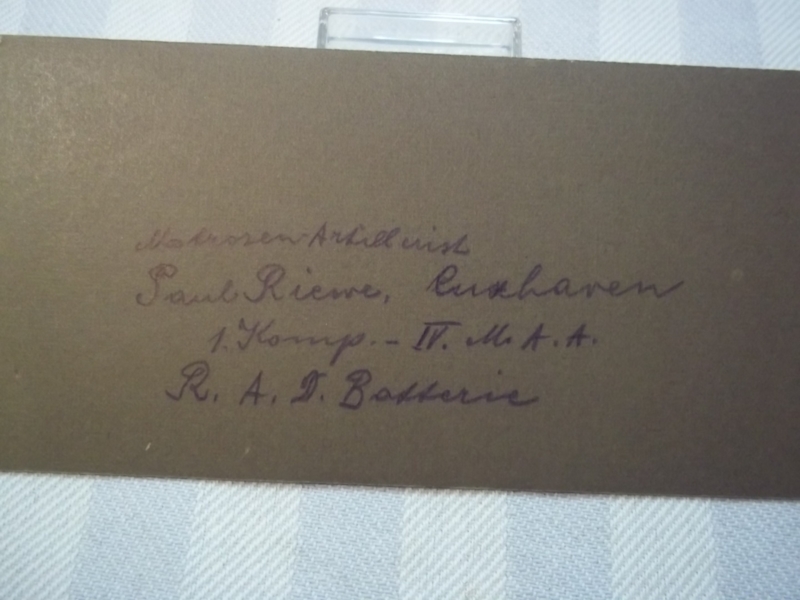 Matrosen-Artillerist
Paul Riewe, Cuxhaven
1. Komp. - IV. M. A. A.
R. A. D. Batterie